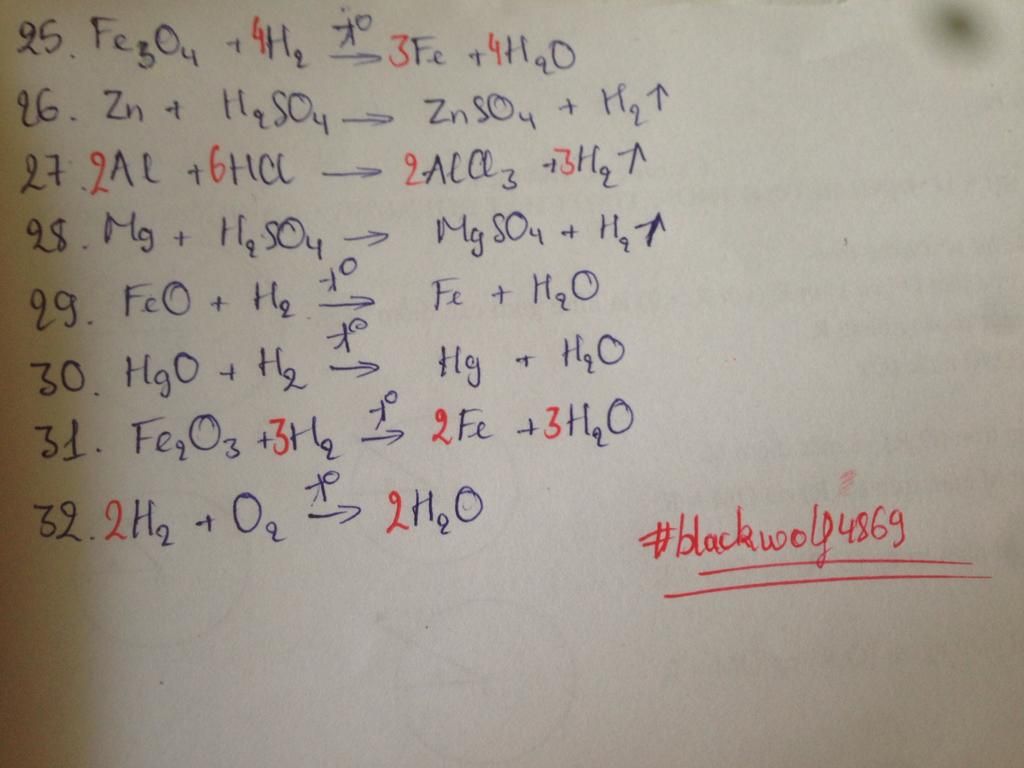 25. Fe₃O₄ + 4H₂ →(t°) 3Fe + 4H₂O
26. Zn + H₂SO₄ → ZnSO₄ + H₂↑
27. 2Al + 6HCl → 2AlCl₃ + 3H₂↑
28. Mg + H₂SO₄ → MgSO₄ + H₂↑
29. FeO + H₂ →(t°) Fe + H₂O
30. HgO + H₂ →(t°) Hg + H₂O
31. Fe₂O₃ + 3H₂ →(t°) 2Fe + 3H₂O
32. 2H₂ + O₂ →(t°) 2H₂O
#blackwolf4869